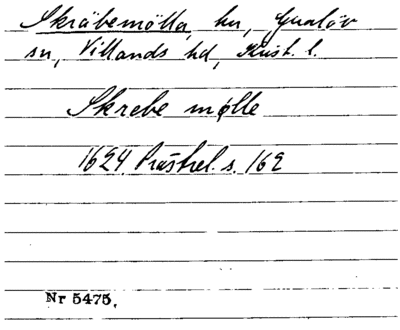 Skräbemölla, hu, Gualöv
sn, Villands hd, Krist. l.
Skrebe mølle
1624 Prästrel. s. 162
Nr 5475.